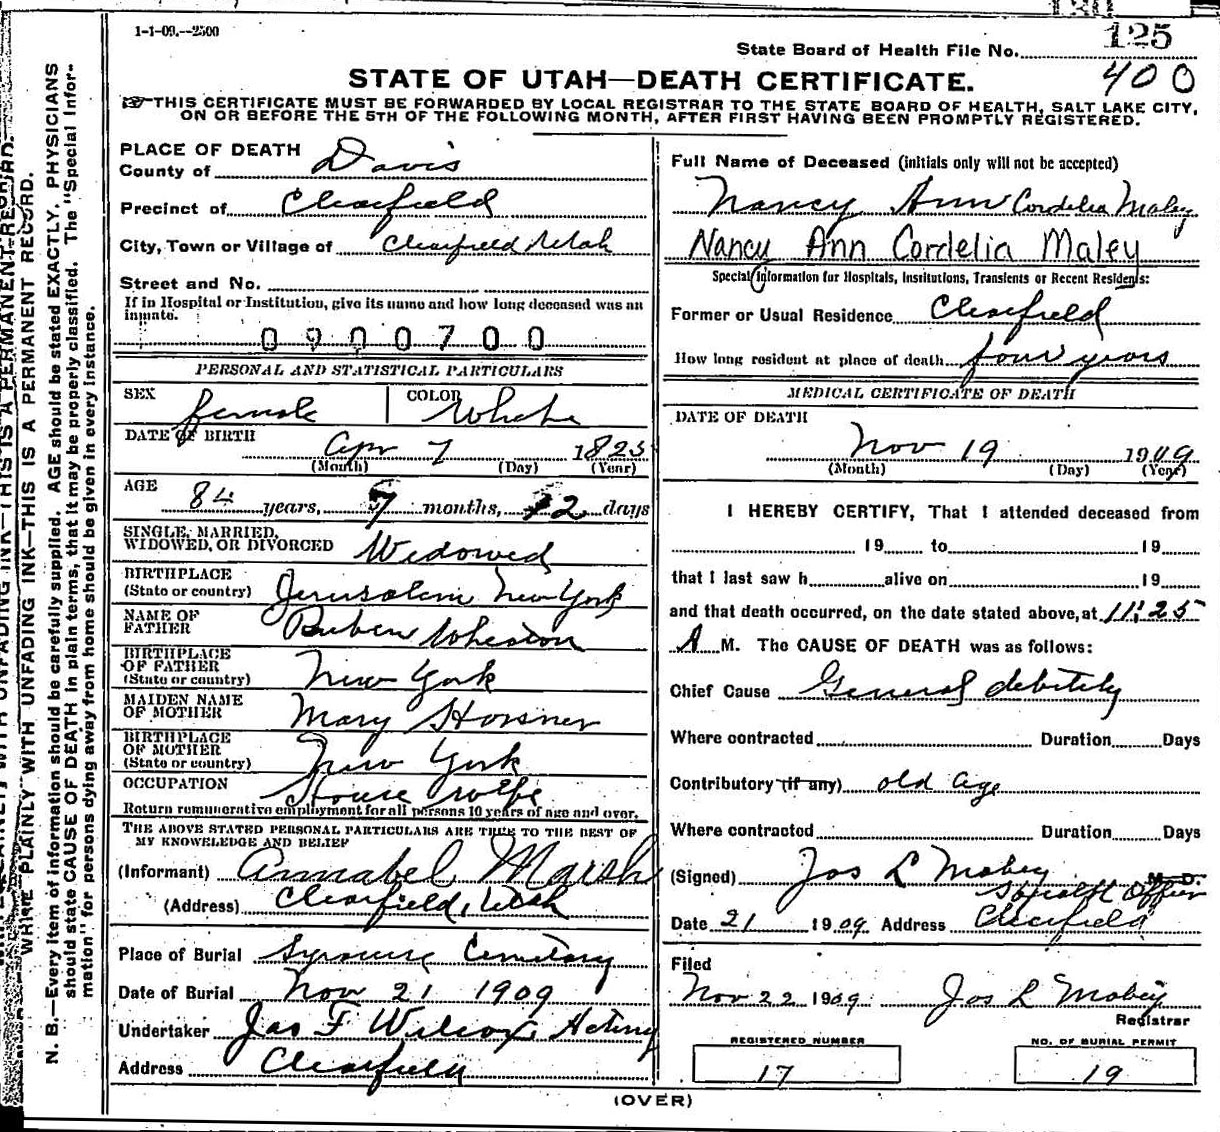 1-1-09.--2500
125
State Board of Health File No.
400
STATE OF UTAH—DEATH CERTIFICATE.
THIS CERTIFICATE MUST BE FORWARDED BY LOCAL REGISTRAR TO THE STATE BOARD OF HEALTH, SALT LAKE CITY,
ON OR BEFORE THE 5TH OF THE FOLLOWING MONTH, AFTER FIRST HAVING BEEN PROMPTLY REGISTERED.
PLACE OF DEATH
County of Davis
Precinct of Clearfield
City, Town or Village of Clearfield Utah
Street and No.
If in Hospital or Institution, give its name and how long deceased was an
inmate.
0 9 0 0 7 0 0
PERSONAL AND STATISTICAL PARTICULARS
SEX female COLOR White
DATE OF BIRTH Apr 7 1825
(Month) (Day) (Year)
AGE 84 years, 7 months, 12 days
SINGLE, MARRIED,
WIDOWED, OR DIVORCED Widowed
BIRTHPLACE
(State or country) Jerusalem New York
NAME OF
FATHER Ruben Wheaton
BIRTHPLACE
OF FATHER
(State or country) New York
MAIDEN NAME
OF MOTHER Mary Hovsner
BIRTHPLACE
OF MOTHER
(State or country) New York
OCCUPATION House Wife
Return remunerative employment for all persons 10 years of age and over.
THE ABOVE STATED PERSONAL PARTICULARS ARE TRUE TO THE BEST OF
MY KNOWLEDGE AND BELIEF
(Informant) Annabel Marsh
(Address) Clearfield, Utah
Place of Burial Syracuse Cemetary
Date of Burial Nov 21 1909
Undertaker Jas F Wilcox Acting
Address Clearfield
Full Name of Deceased (initials only will not be accepted)
Nancy Ann Cordelia Maley
Nancy Ann Cordelia Maley
Special Information for Hospitals, Institutions, Transients or Recent Residents:
Former or Usual Residence Clearfield
How long resident at place of death four years
MEDICAL CERTIFICATE OF DEATH
DATE OF DEATH
Nov 19 1909
(Month) (Day) (Year)
I HEREBY CERTIFY, That I attended deceased from
19 to 19
that I last saw h alive on 19
and that death occurred, on the date stated above, at 11:25
A M. The CAUSE OF DEATH was as follows:
Chief Cause General debitely
Where contracted Duration Days
Contributory (if any) old age
Where contracted Duration Days
(Signed) Jos L Mobey M. D.
Health Officer
Date 21 1909 Address Clearfield
Filed
Nov 22 1909 Jos L Mobey
Registrar
REGISTERED NUMBER
17
NO. OF BURIAL PERMIT
19
(OVER)
WRITE PLAINLY WITH UNFADING INK—THIS IS A PERMANENT RECORD.
N. B.—Every item of information should be carefully supplied. AGE should be stated EXACTLY. PHYSICIANS
should state CAUSE OF DEATH in plain terms, that it may be properly classified. The "Special Infor-
mation" for persons dying away from home should be given in every instance.